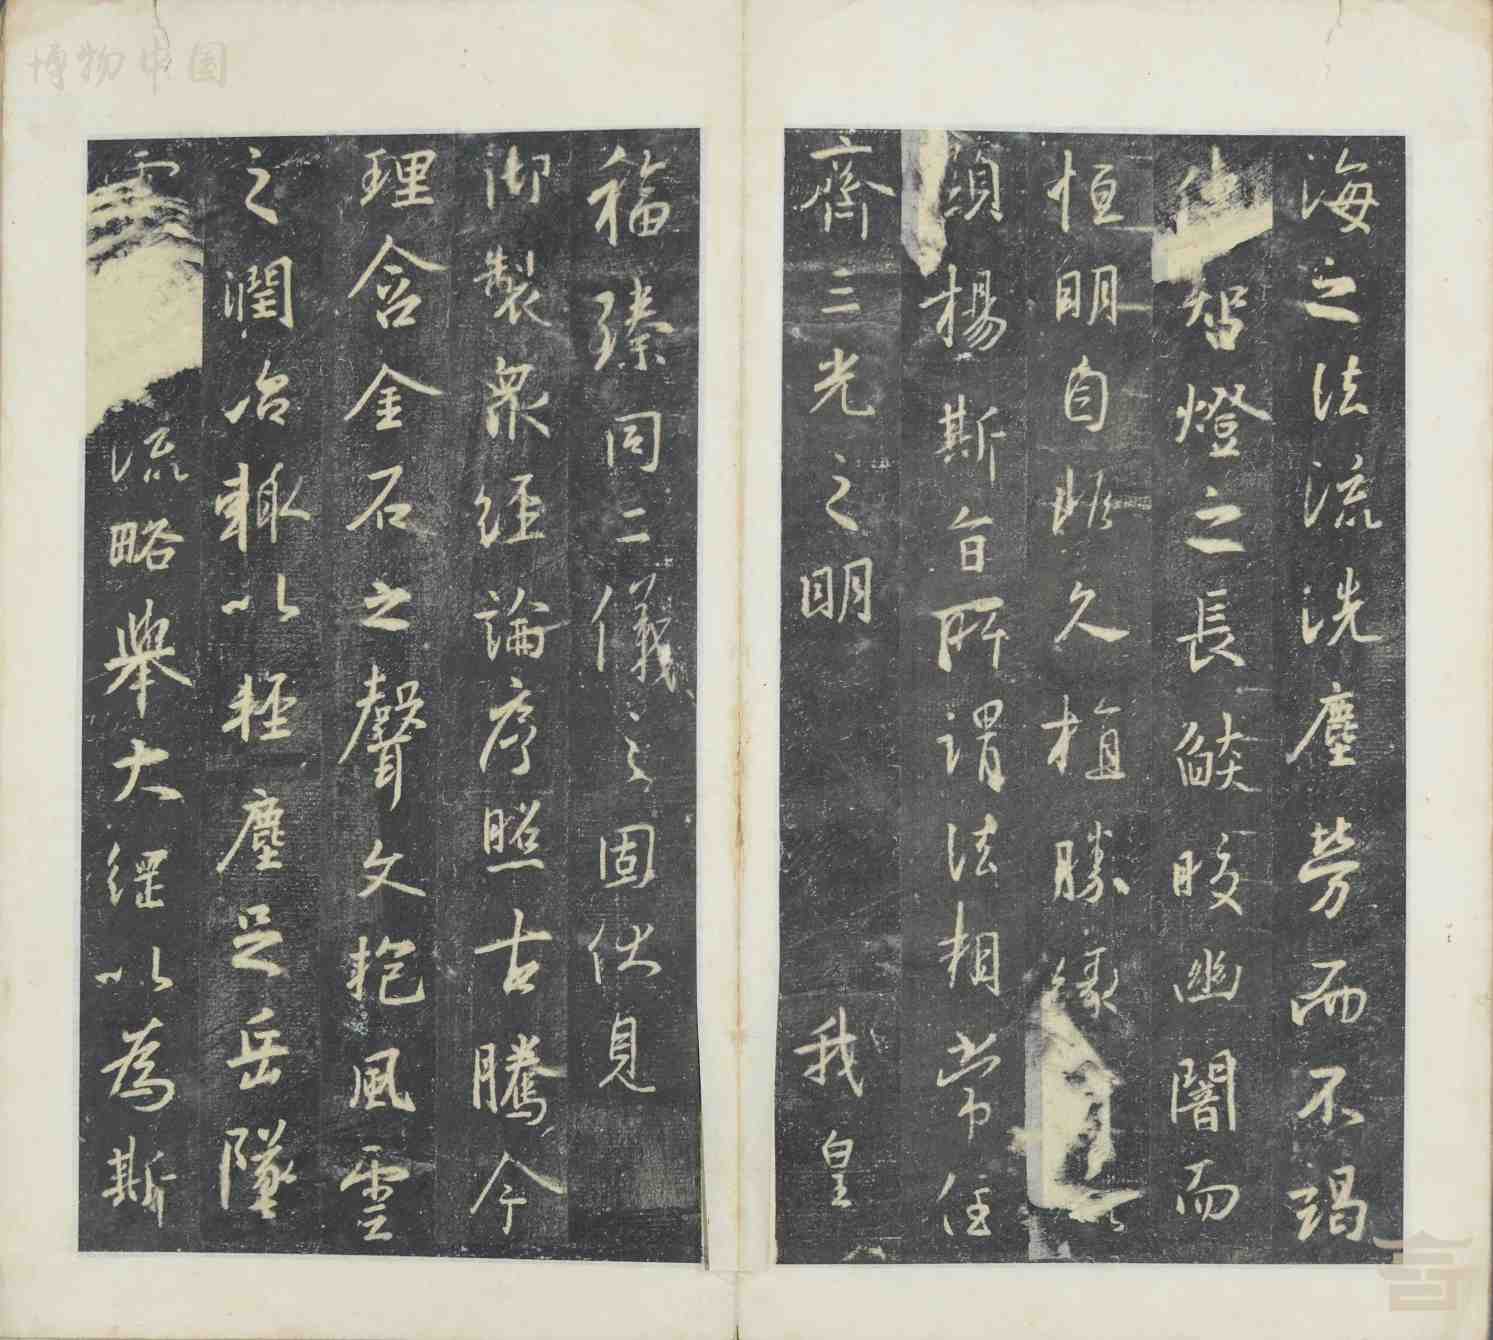 博物中国
海之法流洗塵勞而不竭
傳智燈之長燄皎幽闇而
恒明自非久植勝緣以
顯揚斯旨所謂法相常住
齊三光之明 我皇
福臻同二儀之固伏見
御製衆經論序照古騰今
理含金石之聲文抱風雲
之潤治輒以輕塵足岳墜
流略舉大綱以為斯